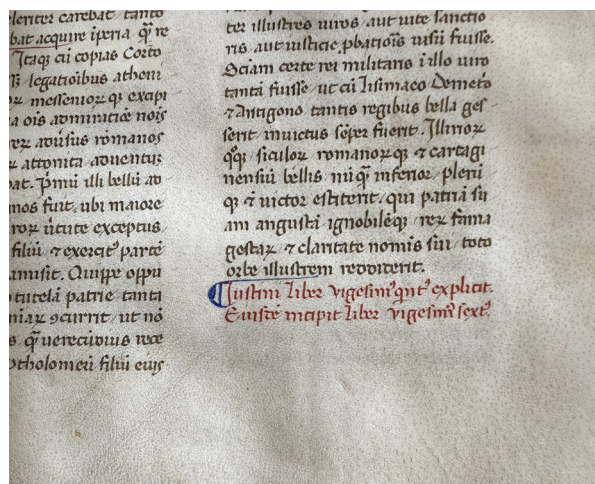 leriter carebat tanto
bat acquire̅ iperia q̅ re
Itaqȝ cu̅ copias Corīto
legatio̅ibus atheni
messenioꝝ qȝ excipi
a o̅is admiratio̅e no̅is
rex adu̅sus romanos
attonita aduentꝰ
bat. P̅mu̅ illi bellu̅ ad
mos fuit, ubi maiore
u̅tute exceptus
filiu̅ ⁊ exercitꝰ parte̅
amisit. Quippe oppu
tutela̅ patrie tanti
ↄcurrit ut no̅
s q̅ uerecu̅dius rece
Ptholomeu̅ filiu̅ eius
ter illustres uiros aut uite sanctio
ris, aut iusticie, ꝓbatio̅is uisu̅ fuisse.
Sciam certe rei militaris i̅ illo uiro
tanta̅ fuisse ut cu̅ lisimaco Demet̅o
⁊ Antigono tantis regibus bella ges
serit inuictus se̅per fuerit. Illirioꝝ
qꝙ siculoꝝ romanoꝝqȝ ⁊ cartagi
nensiu̅ bellis nu̅q̅ inferior, pleru̅
qȝ ⁊ uictor extiterit. qui patria̅ su
am angusta̅ ignobile̅qȝ rex̅ fama
gestaꝝ ⁊ claritate nominis sui toto
orbe illustrem reddiderit.
¶ Iustini liber vigesimꝰ qntꝰ explicit.
Eiusde̅ incipit liber vigesimꝰ sextꝰ.